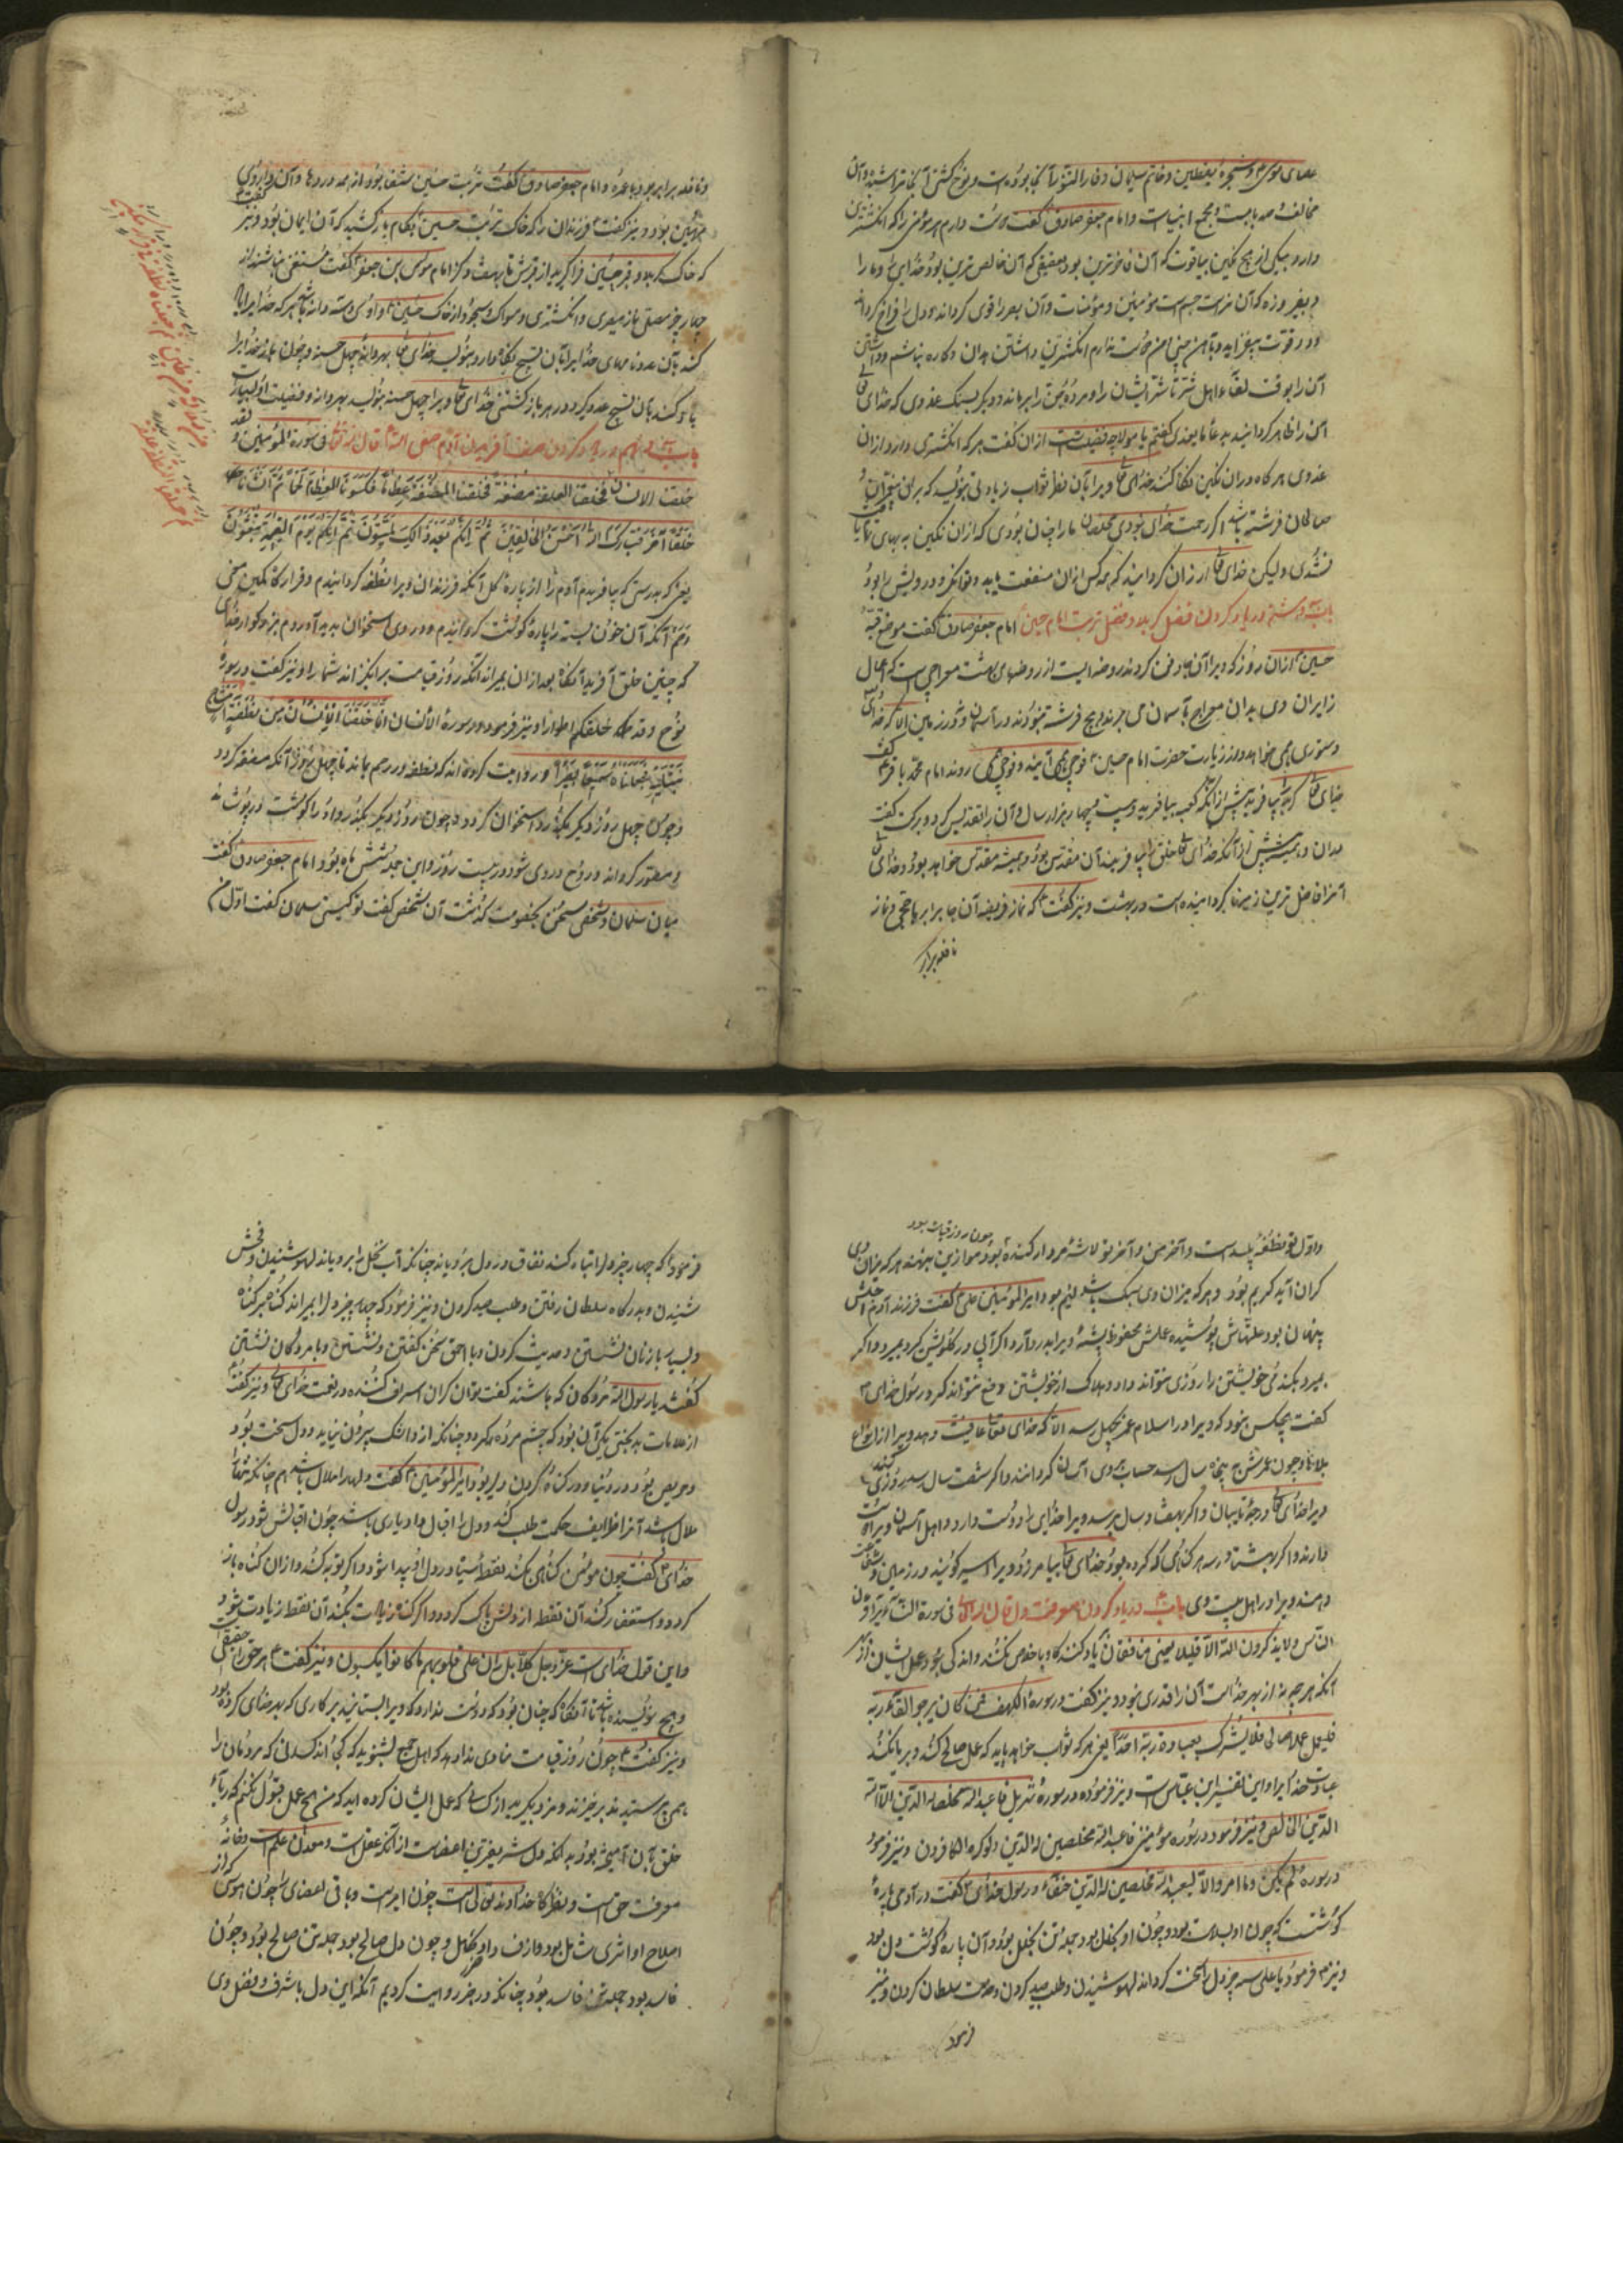 عصای موسی و شجره یقطین و خاتم سلیمان و فار التنور آنجا بوده است و نوح کشتی آنجا تراشیده و آن
مخالف همه بابست و مجمع انبیاست و امام جعفر صادق گفت دوست دارم هر مؤمنی را که انگشتری
دارد بیکی از پنج نگین بیاقوت که آن فاخرترین بود و بعقیق که آن خالص ترین بود خدای را و ما را
و بفیروزه که آن نزهت چشم است مؤمنین و مؤمنات و آن بصر را قوی گرداند و دل را فراخ گرداند
و در قوت بیفزاید و بآهن چینی و من دوست ندارم انگشترین داشتن بدان و کاره نباشم و داشتن
آن را بوقت لقاء اهل شر تا شر ایشان را و مرده جن را براند و دیگر بسنگ غروی که خدای تعالی
آن را ظاهر گردانید گفتم یا مولا چه فضیلت است ازان گفت هر که انگشتری دارد ازان
غروی هر گاه دران نگین نگاه کند خدای تعالی ویرا بآن نظر ثواب زیارتی بنویسد که برای پیغمبران و
صالحان فرشته باشد اگر رحمت خدای نبودی مخلصان ما را چنان بودی که ازان نگین به بهای نیابد
نشدی ولیکن خدای تعالی ارزان گردانید که همه کس ازان منفعت یابد و توانگر و درویش را بود
باب در یاد کردن فضل کربلا و فضل تربت امام حسین امام جعفر صادق گفت موضع قبر
حسین ازان روز که ویرا آنجا دفن کردند روضه ایست از روضهای بهشت معراجی است که اعمال
زایران وی بدان معراج بآسمان می برند و هیچ فرشته نبودند در آسمان و نه در زمین الا که خدای
دستوری می خواهد و از زیارت حضرت امام حسین فوجی می آیند و فوجی می روند امام محمد باقر گفت
خدای تعالی کربلا بیافرید پیش ازانکه کعبه بیافرید به بیست و چهار هزار سال و آن را تقدیس کرد و برکت گفت
بدان و همیشه پیش ازانکه خدای تعالی خلق را بیافریند آن مقدس بود و همیشه مقدس خواهد بود و خدای تعالی
آنرا فاضل ترین زمینها گردانیده است در بهشت و نیز گفت که نماز فریضه آنجا برابر با حج و نماز
نافله برابر
و نافله برابر بود با عمره و امام جعفر صادق گفت تربت حسین شفا بود از همه دردها و آن داروی
مهین بود و نیز گفت فرزندان را که خاک تربت حسین بکام بازکشید که آن ایمان بود و نیز گفت
که خاک کربلا و قبر حسین فرا گیرید از قبرش تا بهفت گز امام موسی بن جعفر گفت مستغنی نباشند از
چهار چیز مصلی باز میبری و انگشتری و مسواک و سبحه از خاک حسین و او سی و سه دانه باشد هر که خدا را بآن
کند بآن عدد نامهای خدا بآن تسبیح نگاه دارد بنویسد خدای تعالی بهر دانه چهل حسنه و چون یاد خدا را
یاد کند بآن تسبیح عدد گیرد در هر باز گشتن خدای تعالی ویرا چهل حسنه بنویسد بهر دانه و فضیلت او بسیارست
باب در یاد کردن صفت آفریدن آدم صفی الله قال الله تعالی فی سورة المؤمنین و لقد
خلقنا الانسان فخلقنا العلقة مضغة فخلقنا المضغة عظاما فکسونا العظام لحما ثم انشأناه
خلقا آخر فتبارک الله احسن الخالقین ثم انکم بعد ذلک لمیتون ثم انکم یوم القیمة تبعثون
یعنی که بدرستی که بیافریدم آدم را از پاره گل آنکه فرزندان ویرا نطفه گردانیدم و قرارگاه مکین
و ثم آنکه آن خون بسته را پاره گوشت گردانیدم و در وی استخوان پدید آوردم بزرگوار خدای
که چنین خلق آفرید آنگاه بعد ازان بمیراند آنگه روز قیامت برانگیزاند شما را و نیز گفت در سوره
نوح وقد خلقکم اطوارا و نیز فرمود در سورة الانسان انا خلقنا الانسان من نطفة امشاج
نبتلیه فجعلناه سمیعا بصیرا و روایت کرده اند که نطفه در رحم بماند تا چهل روز آنکه مضغه گردد
و چون چهل روز دیگر بگذرد استخوان گردد و چون روز دیگر بگذرد او را گوشت در پوشاند
و مصور گرداند و روح در وی شود در بیست روز و این جمله شش ماه بود و امام جعفر صادق گفت
میان سلمان و شخصی سخن بخصومت گذشت آن شخص گفت تو کیستی سلمان گفت اول من
و اول تو نطفه پلیدست و آخر من و آخر تو لاشه مردار گنده بود موازین بنهند هر که میزان وی
چون روز قیامت بود
گران آید کریم بود و هر که میزان وی سبک باشد لئیم بود امیرالمؤمنین علی گفت فرزند آدم اجلش
پنهان بود علتهاش پوشیده عملش محفوظ پشه ویرا بدرد آرد اگر آبی در گلویش گیرد بمیرد و اگر
بمیرد بگندد خویشتن را روزی نتواند داد و هلاک از خویشتن دفع نتواند کرد و رسول خدای
گفت هیچکس نبود که ویرا در اسلام عمر بچهل رسد الا که خدای تعالی عافیت دهد ویرا از انواع
بلاها و چون عمرش به پنجاه سال رسد حساب بروی آسان گردانند و اگر شصت سال رسد روزی کند
ویرا خدای تعالی درجه تایبان و اگر بهفتاد سال برسد ویرا خدای را دوست دارد و اهل آسمان ویرا دوست
دارند و اگر بهشتاد رسد هر گناهی که کرده بود خدای تعالی بیامرزد ویرا اسیر گویند در زمین و شفاعت
دهند ویرا در اهل بیت وی باب در یاد کردن معرفت دل قال الله تعالی فی سورة النساء یراؤن
الناس ولا یذکرون الله الا قلیلا یعنی منافقان یاد نکنند گاه باخلاص نکنند و اندکی بود عمل ایشان از بهر
آنکه هر چه نه از بهر خداست آن را قدری نبود و نیز گفت در سورة الکهف فمن کان یرجوا لقاء ربه
فلیعمل عملا صالحا فلا یشرک بعبادة ربه احدا یعنی هر که ثواب خواهد باید که عمل صالح کند و بریا نکند
عبادت خدا را و این تفسیر ابن عباس است و نیز فرموده در سوره تنزیل فاعبد الله مخلصا له الدین الا لله
الدین الخالص و نیز فرمود در سوره مؤمن فاعبدوا الله مخلصین له الدین ولو کره الکافرون و نیز فرمود
در سوره لم یکن وما امروا الا لیعبدوا الله مخلصین له الدین حنفاء و رسول خدای گفت در آدمی پاره
گوشتست که چون او بسلامت بود و چون او بخلل بود جمله تن بخلل بود و آن پاره گوشت دل بود
و نیز فرمود یا علی سه چیز دل را سخت گرداند لهو شنیدن و طلب صید کردن و خدمت سلطان کردن و نیز
فرمود
فرمود که چهار چیز دل را تباه کند نفاق در دل برویاند چنانکه آب نخل را برویاند لهو شنیدن و فحش
شنیدن و بدرگاه سلطان رفتن و طلب صید کردن و نیز فرمود که چهار چیز دل را بمیراند گناه بر گناه
و بسیار بازنان نشستن و حدیث کردن و با احمق سخن گفتن و نشستن و با مردگان نشستن
گفتند یا رسول الله مردگان که باشند گفت توانگران اسراف کننده در نعمت خدای تعالی و نیز گفت
از علامات بدبختی یکی آن بود که چشم مرده گردد چنانکه ازو اشک بیرون نیاید و دل سخت بود
و حریص بود در دنیا و در گناه کردن دلیر بود امیرالمؤمنین گفت دلها را ملال باشد هم چنانکه تنها را
ملال باشد آنرا ظرایف حکمت طلب کنند و دل را اقبال و ادباری باشد چون اقبالش شود رسول
خدای گفت چون مؤمن گناهی بکند نقطه سیاه در دل او پیدا شود و اگر توبه کند و ازان گناه باز
گردد و استغفار کند آن نقطه از دلش پاک گردد و اگر گناه زیادت بکند آن نقطه زیادت شود
و این قول خدای است عز و جل کلا بل ران علی قلوبهم ما کانوا یکسبون و نیز گفت هر حق را حقیقتی
و هیچ بنده باشد تا آنگاه که چنان بود که دوست ندارد که ویرا بستایند بر کاری که بهر خدای کرده بود
و نیز گفت چون روز قیامت منادی ندا دهد که اهل جمع بشنوید که کجااند کسانی که مردمان را
می پرستیدند برخیزند و مزد بگیرید از کسانی که عمل ایشان کرده اید که من هیچ عمل قبول نکنم که ریاء
خلق بآن آمیخته بود بدانکه دل شریفترین اعضاست ازانکه عقل است و معدن علم است و خانه
معرفت حق است و نظرگاه خداوند تعالی است چون امیرست و باقی اعضای چون
اصلاح او اثری شامل بود و چون دل صالح بود جمله تن صالح بود و چون
فاسد بود جمله تن فاسد بود چنانکه در خبر روایت کردیم آنکه این دل با شرف و فضل وی